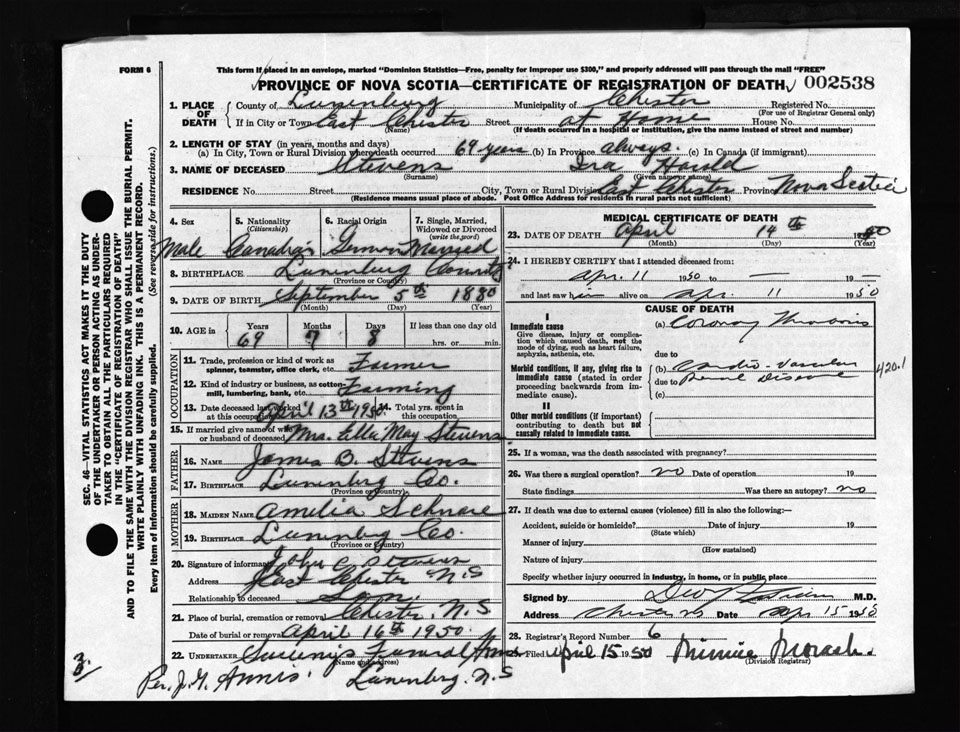 FORM 6
This form if placed in an envelope, marked "Dominion Statistics—Free, penalty for improper use $300," and properly addressed will pass through the mail "FREE"
PROVINCE OF NOVA SCOTIA—CERTIFICATE OF REGISTRATION OF DEATH 002538
1. PLACE OF DEATH
County of Lunenburg Municipality of Chester Registered No.
(For use of Registrar General only)
If in City or Town East Chester Street at Home House No.
(Name) (If death occurred in a hospital or institution, give the name instead of street and number)
2. LENGTH OF STAY (in years, months and days)
(a) In City, Town or Rural Division where death occurred 69 years (b) In Province always. (c) In Canada (if immigrant)
3. NAME OF DECEASED Stevens Ira Harold
(Surname) (Given name or names)
RESIDENCE No. Street City, Town or Rural Division East Chester Province Nova Scotia
(Residence means usual place of abode. Post Office Address for residents in rural parts not sufficient)
4. Sex
Male
5. Nationality
(Citizenship)
Canadian
6. Racial Origin
German
7. Single, Married, Widowed or Divorced
(write the word)
Married
8. BIRTHPLACE Lunenburg County
(Province or Country)
9. DATE OF BIRTH September 5th 1880
(Month) (Day) (Year)
10. AGE in Years Months Days If less than one day old
69 7 8 hrs. or min.
OCCUPATION
11. Trade, profession or kind of work as spinner, teamster, office clerk, etc. Farmer
12. Kind of industry or business, as cotton-mill, lumbering, bank, etc. Farming
13. Date deceased last worked at this occupation April 13th 1950 14. Total yrs. spent in this occupation
15. If married give name of wife or husband of deceased Mrs. Ella May Stevens
FATHER
16. NAME James B. Stevens
17. BIRTHPLACE Lunenburg Co.
(Province or Country)
MOTHER
18. MAIDEN NAME Amelia Schnare
19. BIRTHPLACE Lunenburg Co.
(Province or Country)
20. Signature of informant John C Stevens
Address East Chester N.S
Relationship to deceased Son.
21. Place of burial, cremation or removal Chester, N.S
Date of burial or removal April 16th 1950.
22. UNDERTAKER Sweeny's Funeral
(Name and address)
Per. J. G. Annis. Lunenburg. N.S
3.
MEDICAL CERTIFICATE OF DEATH
23. DATE OF DEATH April 14th 1950
(Month) (Day) (Year)
24. I HEREBY CERTIFY that I attended deceased from:
Apr. 11 1950 to — 19—
and last saw him alive on Apr. 11 1950
CAUSE OF DEATH
I
Immediate cause
Give disease, injury or complication which caused death, not the mode of dying, such as heart failure, asphyxia, asthenia, etc.
(a) Coronary Thrombosis
due to
Morbid conditions, if any, giving rise to immediate cause (stated in order proceeding backwards from immediate cause).
(b) Cardio-Vascular
due to Renal Disease
420.1
(c)
II
Other morbid conditions (if important) contributing to death but not causally related to immediate cause.
25. If a woman, was the death associated with pregnancy?
26. Was there a surgical operation? no Date of operation 19
State findings Was there an autopsy? no
27. If death was due to external causes (violence) fill in also the following:—
Accident, suicide or homicide? Date of injury 19
(State which)
Manner of injury
(How sustained)
Nature of injury
Specify whether injury occurred in industry, in home, or in public place
Signed by M.D.
Address Chester NS Date Apr 15 1950
28. Registrar's Record Number 6
Filed April 15 1950 Minnie
(Division Registrar)
SEC. 46—VITAL STATISTICS ACT MAKES IT THE DUTY
OF THE UNDERTAKER OR PERSON ACTING AS UNDER-
TAKER TO OBTAIN ALL THE PARTICULARS REQUIRED
IN THE "CERTIFICATE OF REGISTRATION OF DEATH"
AND TO FILE THE SAME WITH THE DIVISION REGISTRAR WHO SHALL ISSUE THE BURIAL PERMIT.
WRITE PLAINLY WITH UNFADING INK. THIS IS A PERMANENT RECORD.
Every item of information should be carefully supplied. (See reverse side for instructions.)